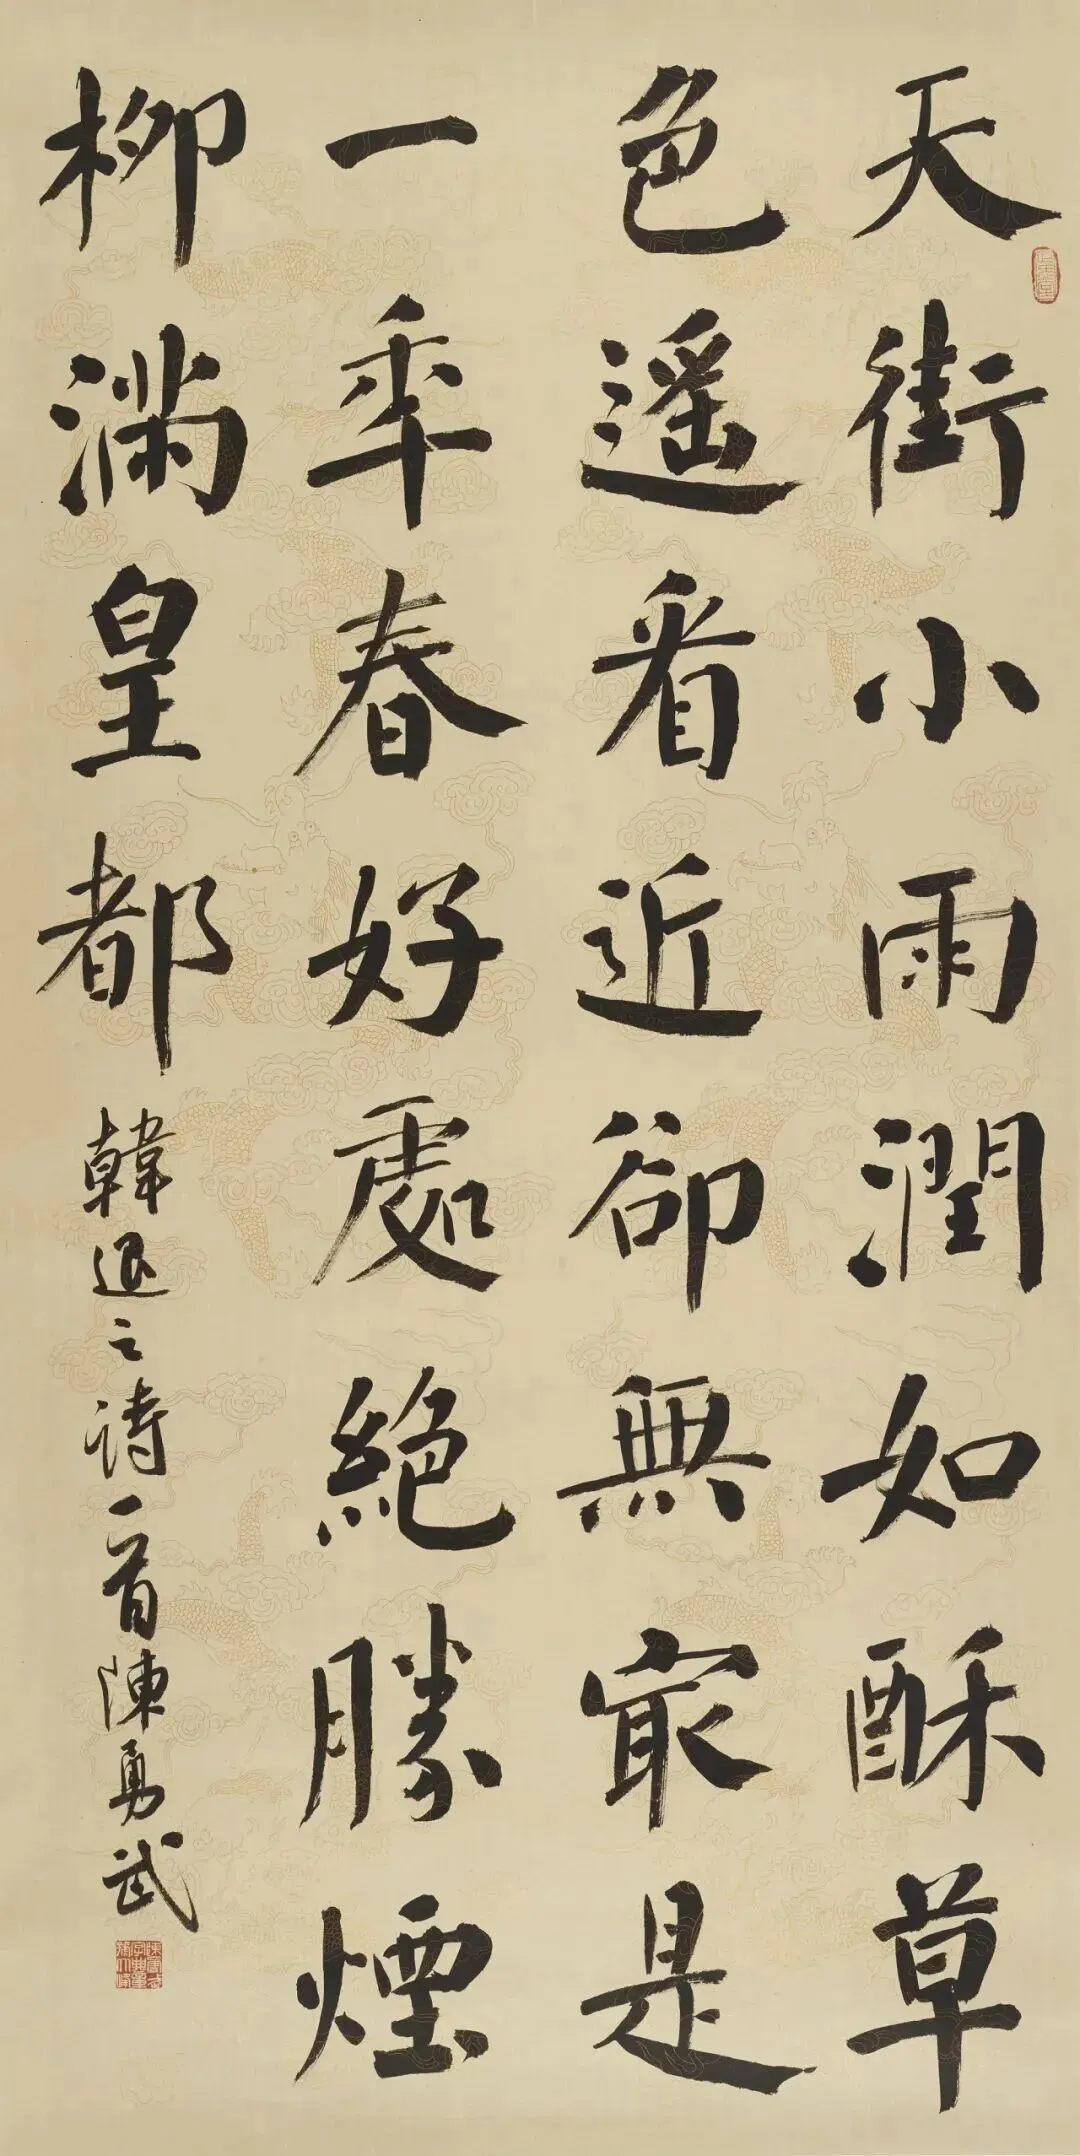 天街小雨潤如酥草
色遥看近卻無最是
一年春好處絶勝煙
柳滿皇都
韓退之詩一首陳勇武